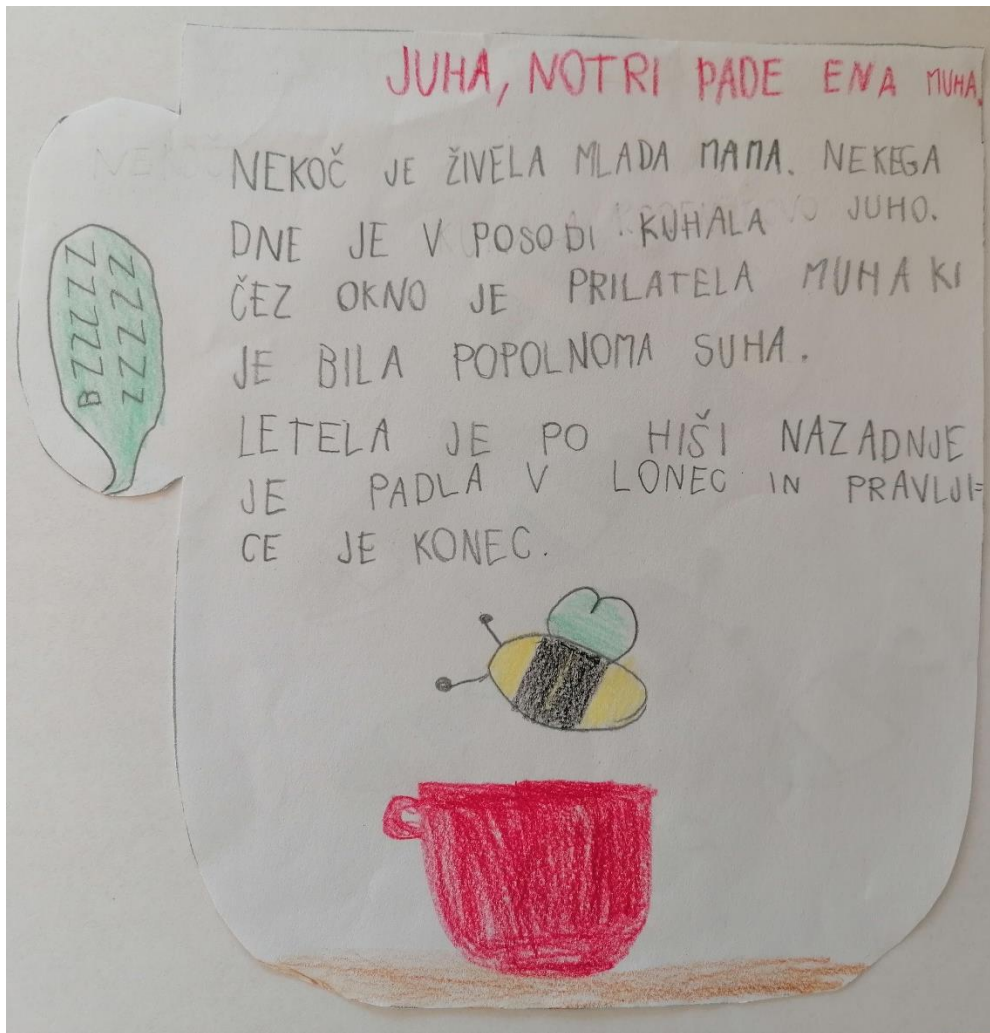 JUHA, NOTRI PADE ENA MUHA.
NEKOČ JE ŽIVELA MLADA MAMA. NEKEGA
DNE JE V POSODI KUHALA JUHO.
ČEZ OKNO JE PRILATELA MUHA KI
JE BILA POPOLNOMA SUHA.
LETELA JE PO HIŠI NAZADNJE
JE PADLA V LONEC IN PRAVLJI=
CE JE KONEC.
BZZZZZ
ZZZZZ